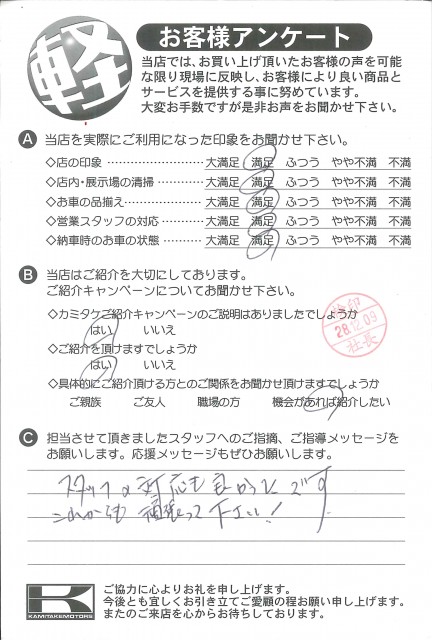 軽
お客様アンケート
当店では、お買い上げ頂いたお客様の声を可能
な限り現場に反映し、お客様により良い商品と
サービスを提供する事に努めています。
大変お手数ですが是非お声をお聞かせ下さい。
A 当店を実際にご利用になった印象をお聞かせ下さい。
◇店の印象 ………………… 大満足 満足 ふつう やや不満 不満
◇店内・展示場の清掃 ………… 大満足 満足 ふつう やや不満 不満
◇お車の品揃え ……………… 大満足 満足 ふつう やや不満 不満
◇営業スタッフの対応 ………… 大満足 満足 ふつう やや不満 不満
◇納車時のお車の状態 ………… 大満足 満足 ふつう やや不満 不満
B 当店はご紹介を大切にしております。
ご紹介キャンペーンについてお聞かせ下さい。
◇カミタケご紹介キャンペーンのご説明はありましたでしょうか
はい いいえ
◇ご紹介を頂けますでしょうか
はい いいえ
◇具体的にご紹介頂ける方とのご関係をお聞かせ頂けますでしょうか
ご親族 ご友人 職場の方 機会があれば紹介したい
検印
28.12.09
社長
C 担当させて頂きましたスタッフへのご指摘、ご指導メッセージを
お願いします。応援メッセージもぜひお願いします。
スタッフの対応も良かったです
これからも頑張って下さい!
K
KAMITAKEMOTORS
ご協力に心よりお礼を申し上げます。
今後とも宜しくお引き立てご愛顧の程お願い申し上げます。
またのご来店を心からお待ちしております。